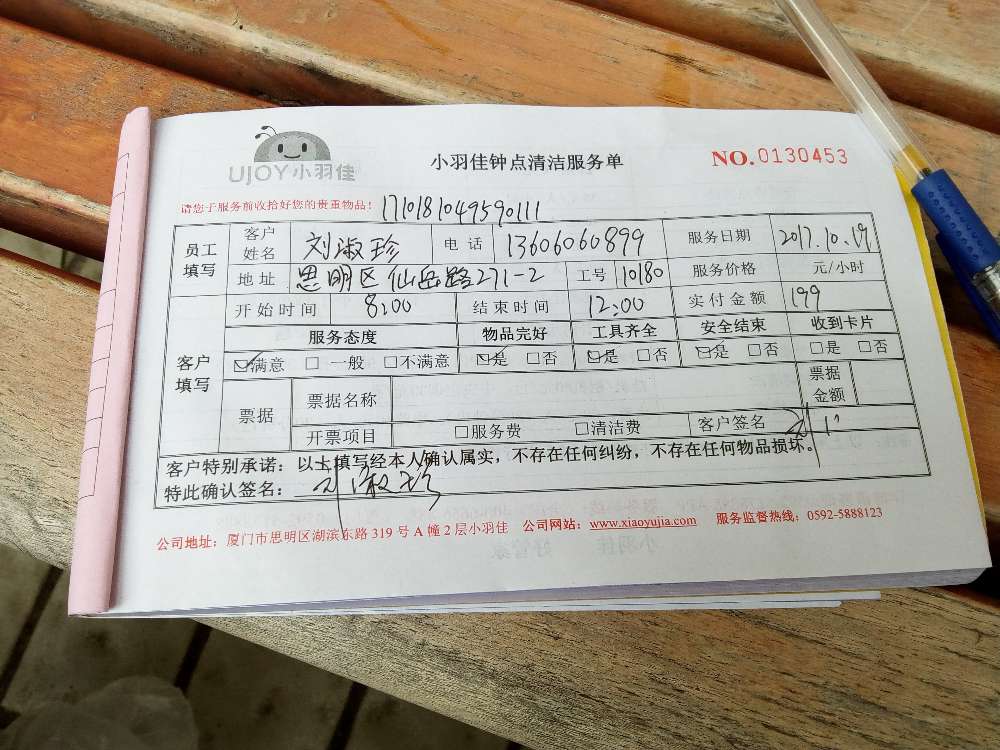 UJOY小羽佳
小羽佳钟点清洁服务单
NO.0130453
请您于服务前收拾好您的贵重物品!
1710181049590111
员工填写 客户姓名 刘淑珍 电话 13606060899 服务日期 2017.10.19
地址 思明区仙岳路271-2 工号 10180 服务价格 元/小时
客户填写 开始时间 8:00 结束时间 12:00 实付金额 199
服务态度 物品完好 工具齐全 安全结束 收到卡片
☑满意 □一般 □不满意 ☑是 □否 ☑是 □否 ☑是 □否 □是 □否
票据 票据名称 票据金额
开票项目 □服务费 □清洁费 客户签名 刘
客户特别承诺:以上填写经本人确认属实,不存在任何纠纷,不存在任何物品损坏。
特此确认签名:刘淑珍
公司地址:厦门市思明区湖滨东路319号A幢2层小羽佳 公司网站:www.xiaoyujia.com 服务监督热线:0592-5888123